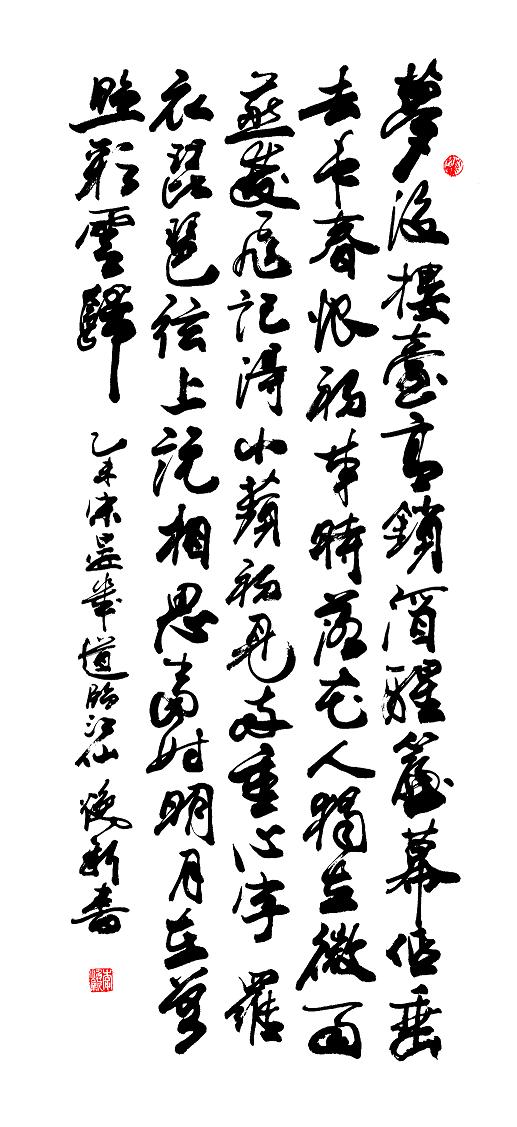 夢後樓臺高鎖酒醒簾幕低垂
去年春恨卻來時落花人獨立微雨
燕雙飛記得小蘋初見兩重心字羅
衣琵琶弦上說相思當時明月在曾
照彩雲歸
乙未宋晏幾道臨江仙 煥新書